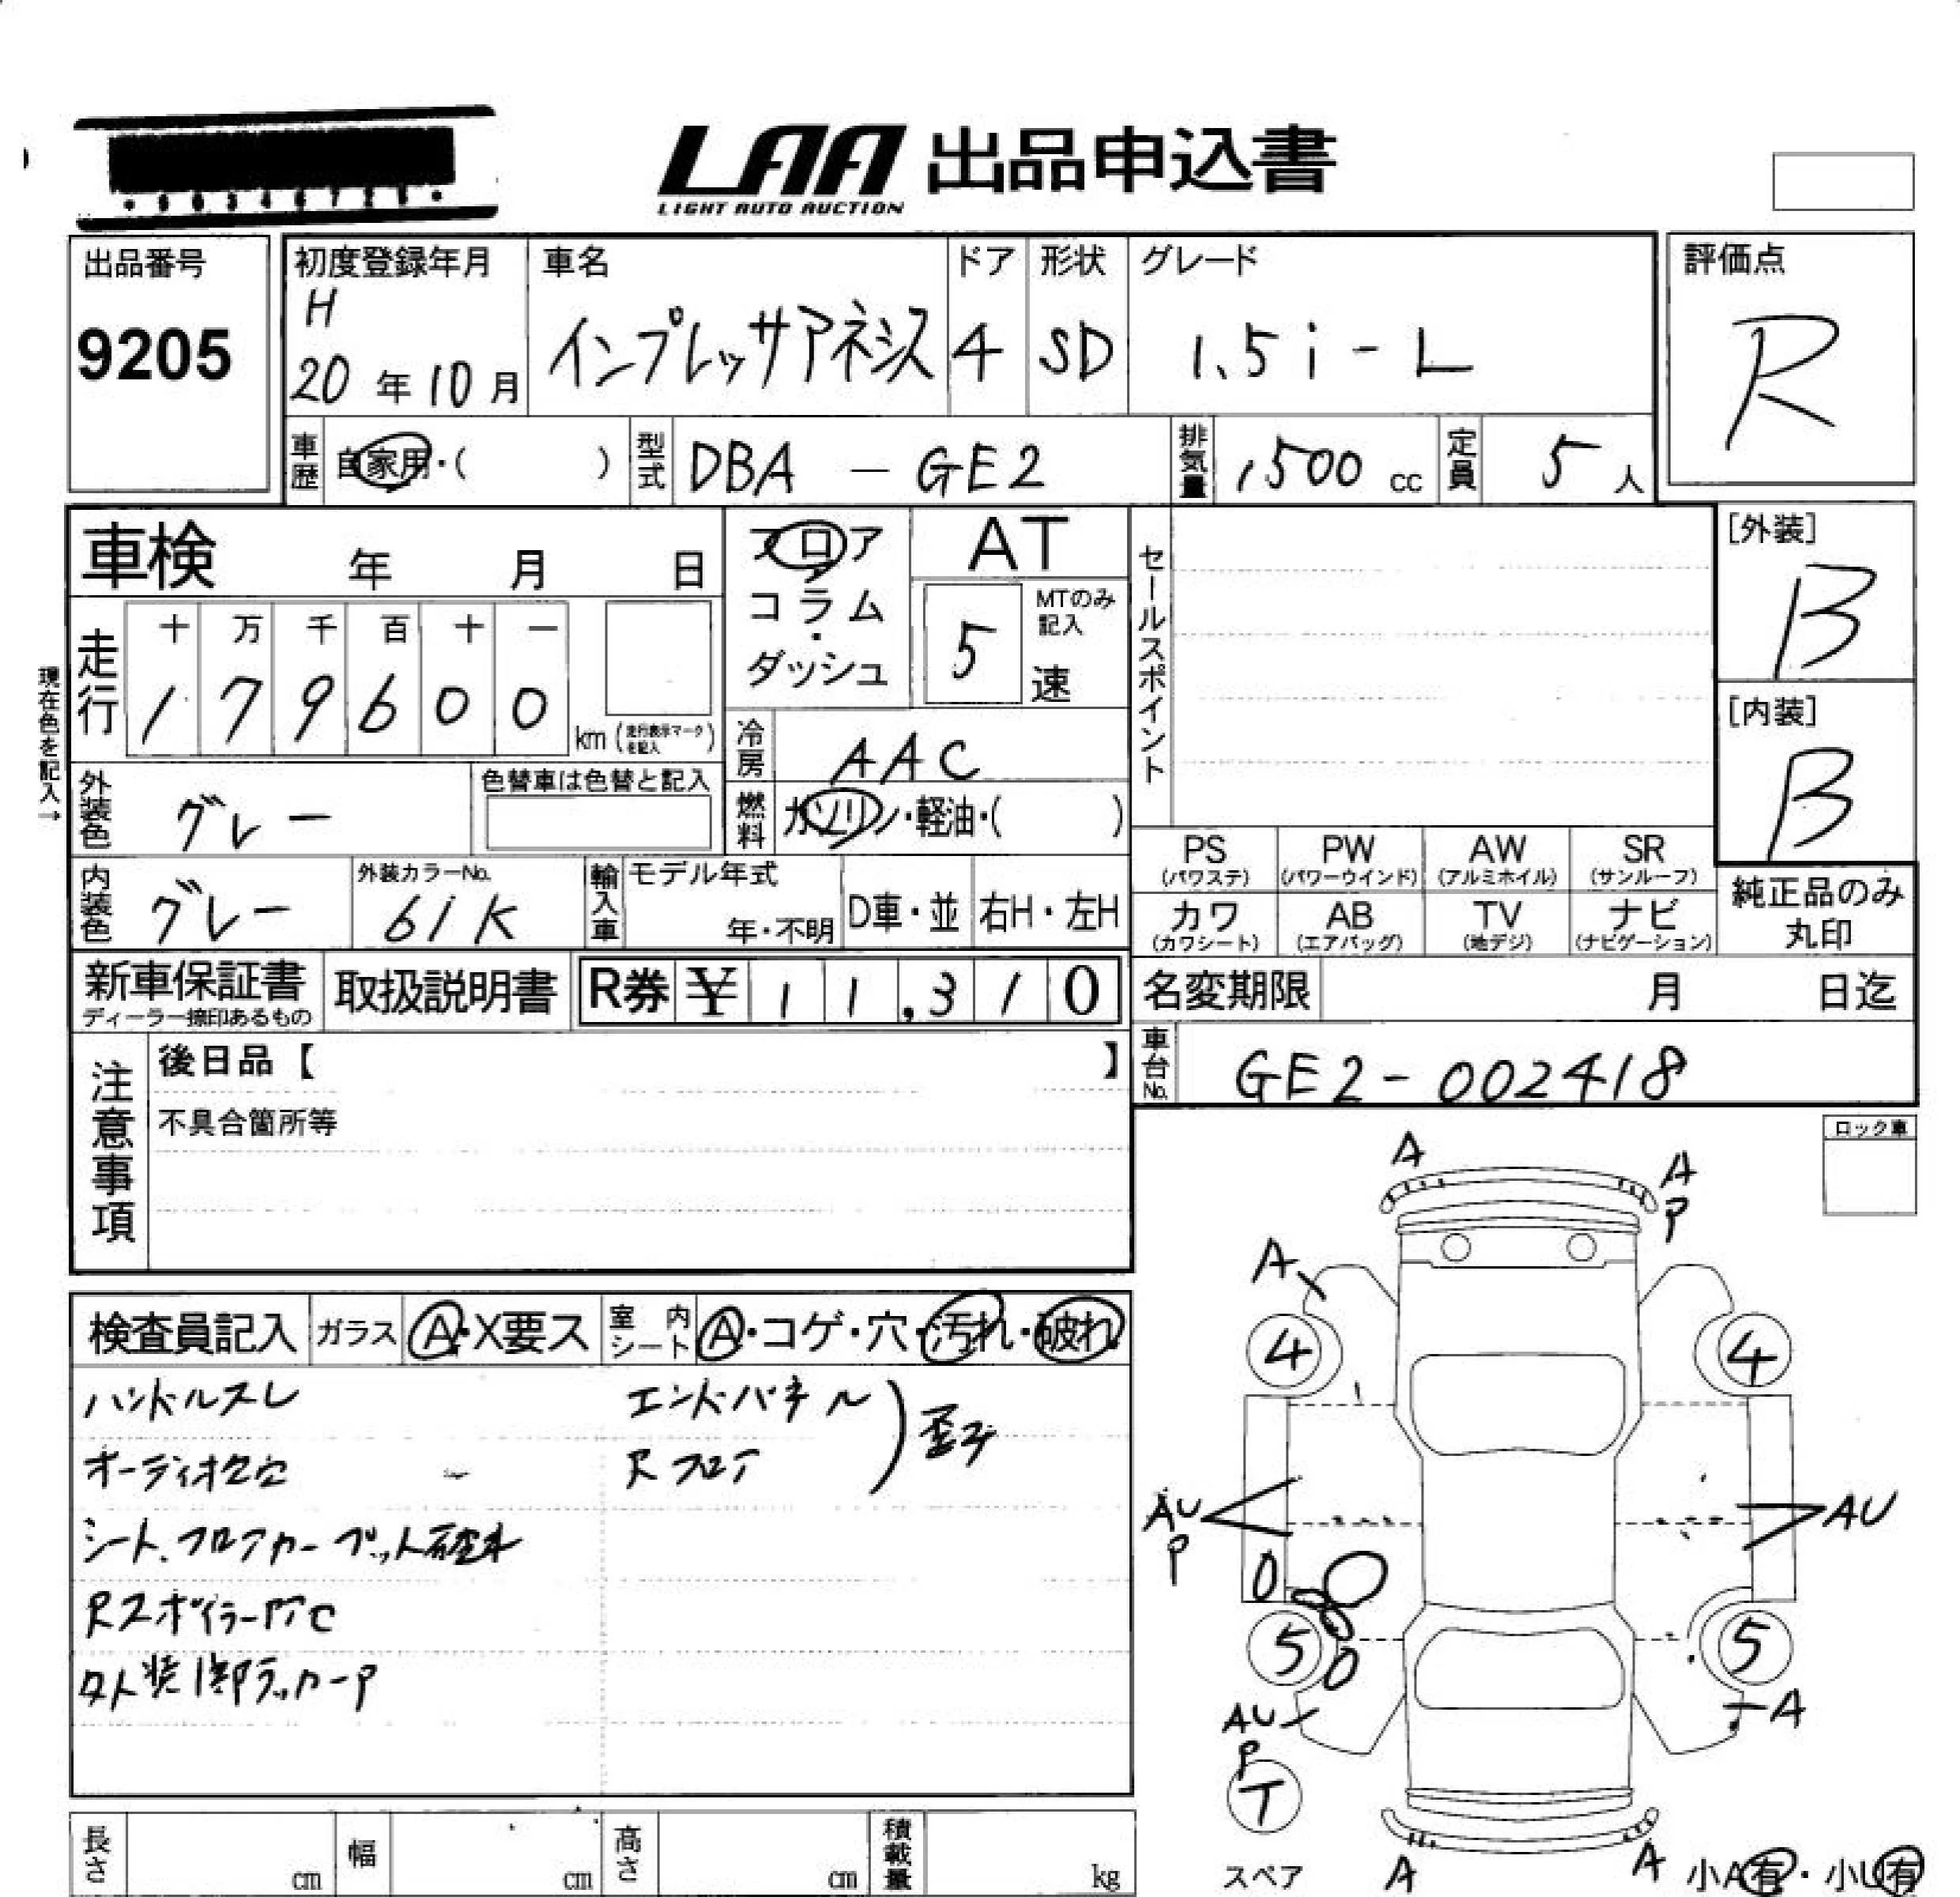 LAA 出品申込書
LIGHT AUTO AUCTION
出品番号
9205
初度登録年月
H
20年10月
車名
インプレッサアネシス
ドア
4
形状
SD
グレード
1.5i-L
評価点
R
車歴 自家用・( )
型式 DBA - GE2
排気量 1500 cc
定員 5人
車検 年 月 日
フロア・コラム・ダッシュ
AT
5速
MTのみ記入
セールスポイント
[外装]
B
[内装]
B
現在色を記入→
走行
十 万 千 百 十 一
1 7 9 6 0 0 km (走行表示マークを記入)
冷房 AAC
外装色 グレー
色替車は色替と記入
燃料 ガソリン・軽油・( )
内装色 グレー
外装カラーNo.
61K
輸入車 モデル年式
年・不明
D車・並
右H・左H
PS (パワステ)
PW (パワーウインド)
AW (アルミホイル)
SR (サンルーフ)
カワ (カワシート)
AB (エアバッグ)
TV (地デジ)
ナビ (ナビゲーション)
純正品のみ丸印
新車保証書
ディーラー捺印あるもの
取扱説明書
R券 ¥ 11,310
名変期限 月 日迄
車台No. GE2-002418
注意事項
後日品【 】
不具合箇所等
ロック車
検査員記入
ガラス A・X要ス
室内シート A・コゲ・穴・汚れ・破れ
ハンドルスレ
オーディオ欠品
シート、フロアカーペット破れ
RスポイラーPTC
外装1部ラッカーP
エンドパネル
Rフロア
歪み
A
A
P
A
4
4
AU
P
AU
5
5
AU
P
A
T
スペア
A
A
小A有・小U有
長さ cm
幅 cm
高さ cm
積載量 kg